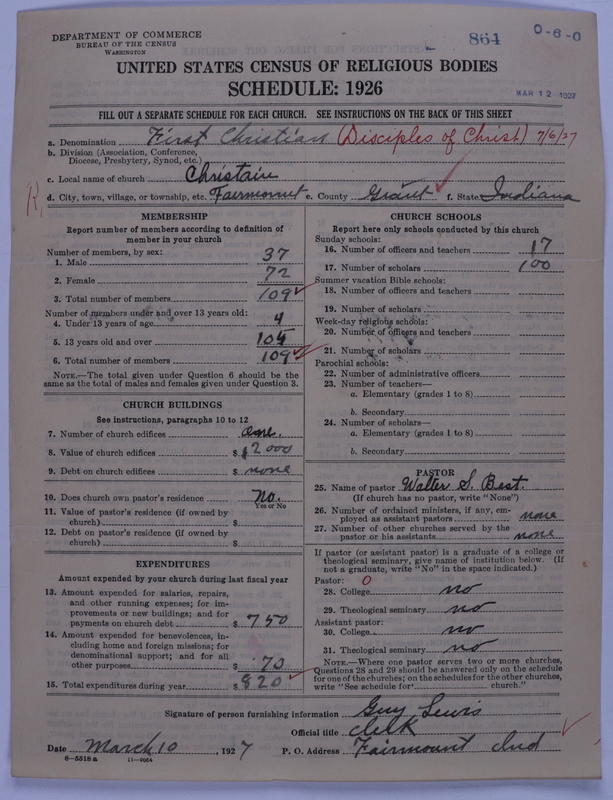 DEPARTMENT OF COMMERCE
BUREAU OF THE CENSUS
WASHINGTON
864
0-6-0
MAR 12 1927
UNITED STATES CENSUS OF RELIGIOUS BODIES
SCHEDULE: 1926
FILL OUT A SEPARATE SCHEDULE FOR EACH CHURCH. SEE INSTRUCTIONS ON THE BACK OF THIS SHEET
a. Denomination First Christian (Disciples of Christ) 7/6/27
b. Division (Association, Conference, Diocese, Presbytery, Synod, etc.)
c. Local name of church Christain
R,
d. City, town, village, or township, etc. Fairmount e. County Grant ✓ f. State Indiana
MEMBERSHIP
Report number of members according to definition of
member in your church
Number of members, by sex:
1. Male 37
2. Female 72
3. Total number of members 109 ✓
Number of members under and over 13 years old:
4. Under 13 years of age 4
5. 13 years old and over 105
6. Total number of members 109 ✓
NOTE.—The total given under Question 6 should be
same as the total of males and females given under Question 3.
CHURCH BUILDINGS
See instructions, paragraphs 10 to 12
7. Number of church edifices one.
8. Value of church edifices $ 2000
9. Debt on church edifices $ none
10. Does church own pastor's residence No.
Yes or No
11. Value of pastor's residence (if owned by
church) $
12. Debt on pastor's residence (if owned by
church) $
EXPENDITURES
Amount expended by your church during last fiscal year
13. Amount expended for salaries, repairs,
and other running expenses; for im-
provements or new buildings; and for
payments on church debt $ 750
14. Amount expended for benevolences, in-
cluding home and foreign missions; for
denominational support; and for all
other purposes $ 70
15. Total expenditures during year $ 820 ✓
CHURCH SCHOOLS
Report here only schools conducted by this church
Sunday schools:
16. Number of officers and teachers 17
17. Number of scholars 100
Summer vacation Bible schools:
18. Number of officers and teachers
19. Number of scholars
Week-day religious schools:
20. Number of officers and teachers
21. Number of scholars
Parochial schools:
22. Number of administrative officers
23. Number of teachers—
a. Elementary (grades 1 to 8)
b. Secondary
24. Number of scholars—
a. Elementary (grades 1 to 8)
b. Secondary
PASTOR
25. Name of pastor Walter S. Best.
(If church has no pastor, write "None")
26. Number of ordained ministers, if any, em-
ployed as assistant pastors none
27. Number of other churches served by the
pastor or his assistants none
If pastor (or assistant pastor) is a graduate of a college or
theological seminary, give name of institution below. (If
not a graduate, write "No" in the space indicated.)
Pastor: 0
28. College no
29. Theological seminary no
Assistant pastor:
30. College no
31. Theological seminary no
NOTE.—Where one pastor serves two or more churches,
Questions 28 and 29 should be answered only on the schedule
for one of the churches; on the schedules for the other churches,
write "See schedule for church."
Signature of person furnishing information Guy Lewis
Official title Clelk
Date March 10, 1927 P. O. Address Fairmount Ind ✓
8—5518 a 11—9064